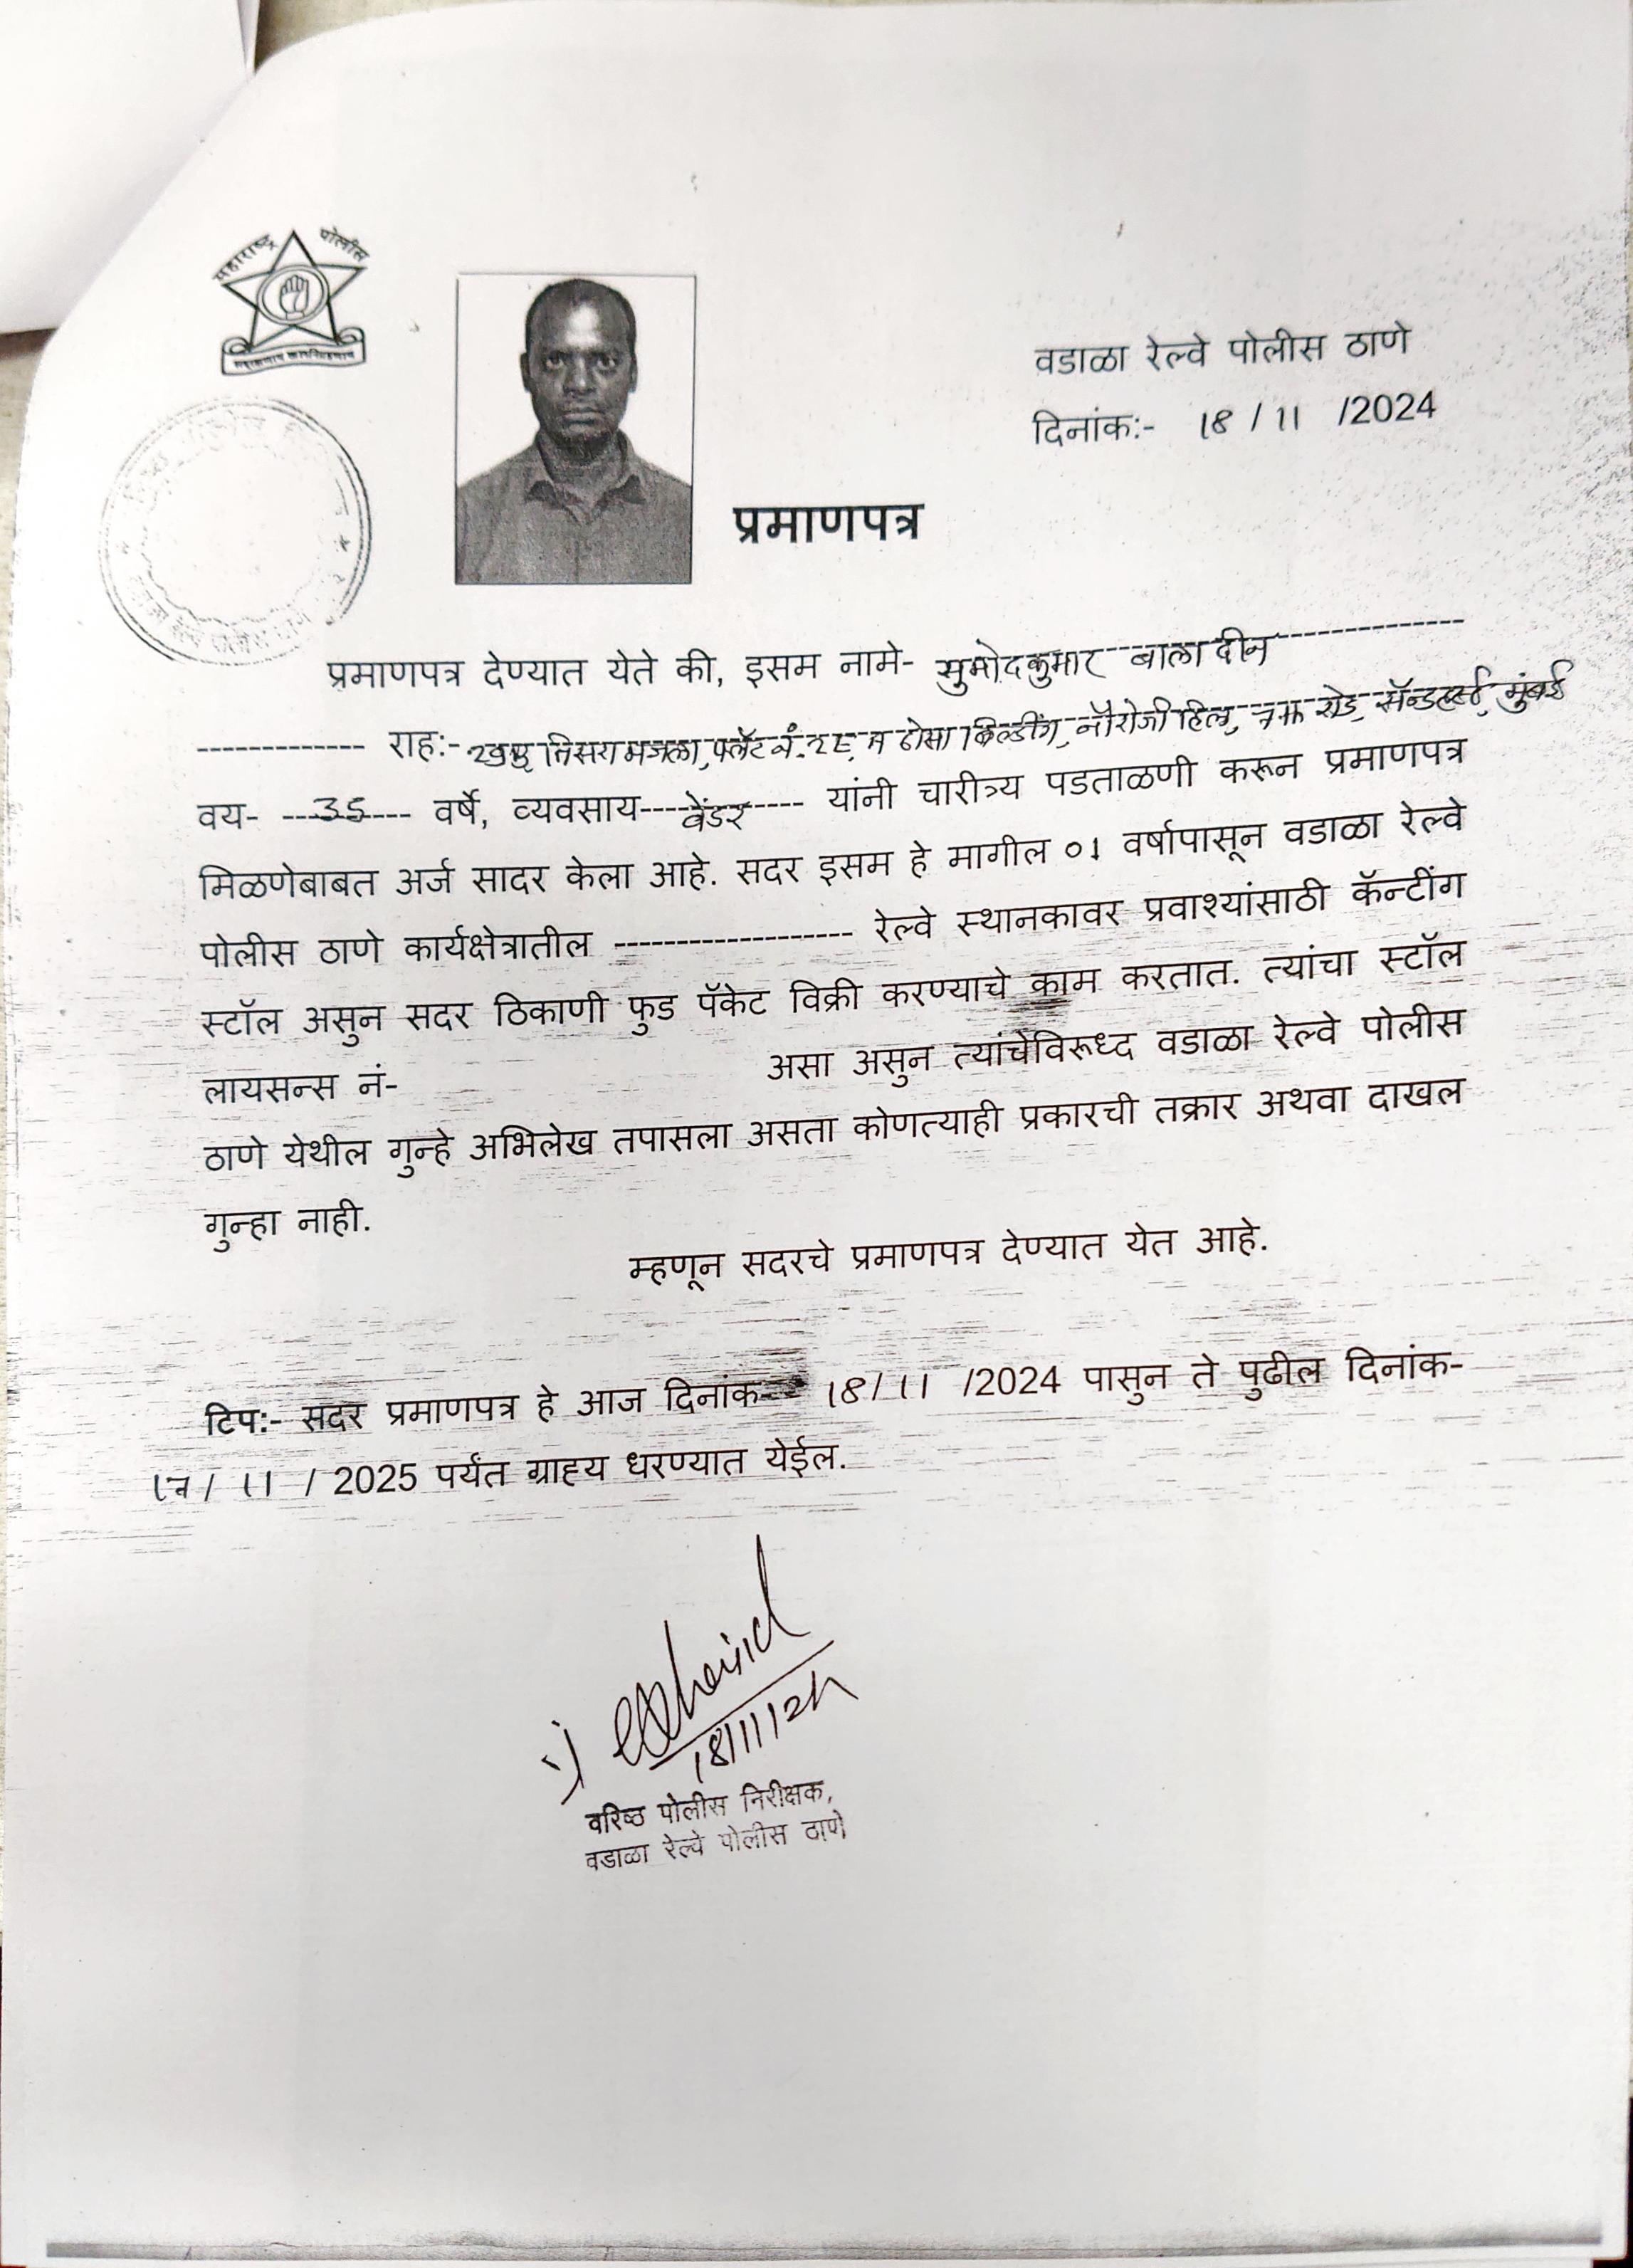 महाराष्ट्र पोलीस
वडाळा रेल्वे पोलीस ठाणे
दिनांक:- 18 / 11 /2024
प्रमाणपत्र
प्रमाणपत्र देण्यात येते की, इसम नामे- सुमोदकुमार बालादीन
------------- राह:- तिसरा मजला, फ्लॅट नं. बिल्डींग, नौरोजी हिल, रोड, सॅन्डहर्स्ट, मुंबई
वय- ---35---- वर्षे, व्यवसाय----वेंडर---- यांनी चारीत्र्य पडताळणी करून प्रमाणपत्र
मिळणेबाबत अर्ज सादर केला आहे. सदर इसम हे मागील ०1 वर्षापासून वडाळा रेल्वे
पोलीस ठाणे कार्यक्षेत्रातील ------------------- रेल्वे स्थानकावर प्रवाश्यांसाठी कॅन्टींग
स्टॉल असुन सदर ठिकाणी फुड पॅकेट विक्री करण्याचे काम करतात. त्यांचा स्टॉल
लायसन्स नं- असा असुन त्यांचेविरूध्द वडाळा रेल्वे पोलीस
ठाणे येथील गुन्हे अभिलेख तपासला असता कोणत्याही प्रकारची तक्रार अथवा दाखल
गुन्हा नाही.
म्हणून सदरचे प्रमाणपत्र देण्यात येत आहे.
टिप:- सदर प्रमाणपत्र हे आज दिनांक- 18/11 /2024 पासुन ते पुढील दिनांक-
17/ 11 / 2025 पर्यंत ग्राह्य धरण्यात येईल.
18/11/24
वरिष्ठ पोलीस निरीक्षक,
वडाळा रेल्वे पोलीस ठाणे